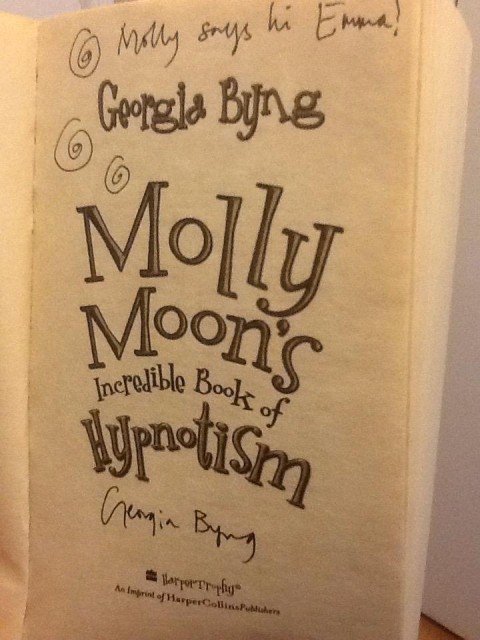 Molly says hi Emma!
Georgia Byng
Molly
Moon's
Incredible Book of
Hypnotism
Georgia Byng
HarperTrophy®
An Imprint of HarperCollinsPublishers